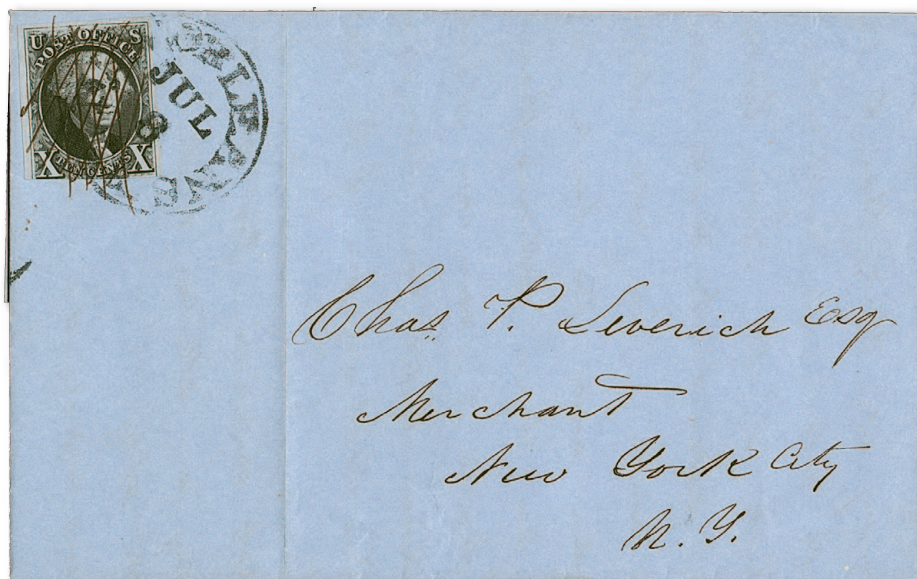 U S
POST OFFICE
X TEN CENTS X
ORLEANS
JUL
8
Chas. P. Leverich Esq
Merchant
New York City
N. Y.